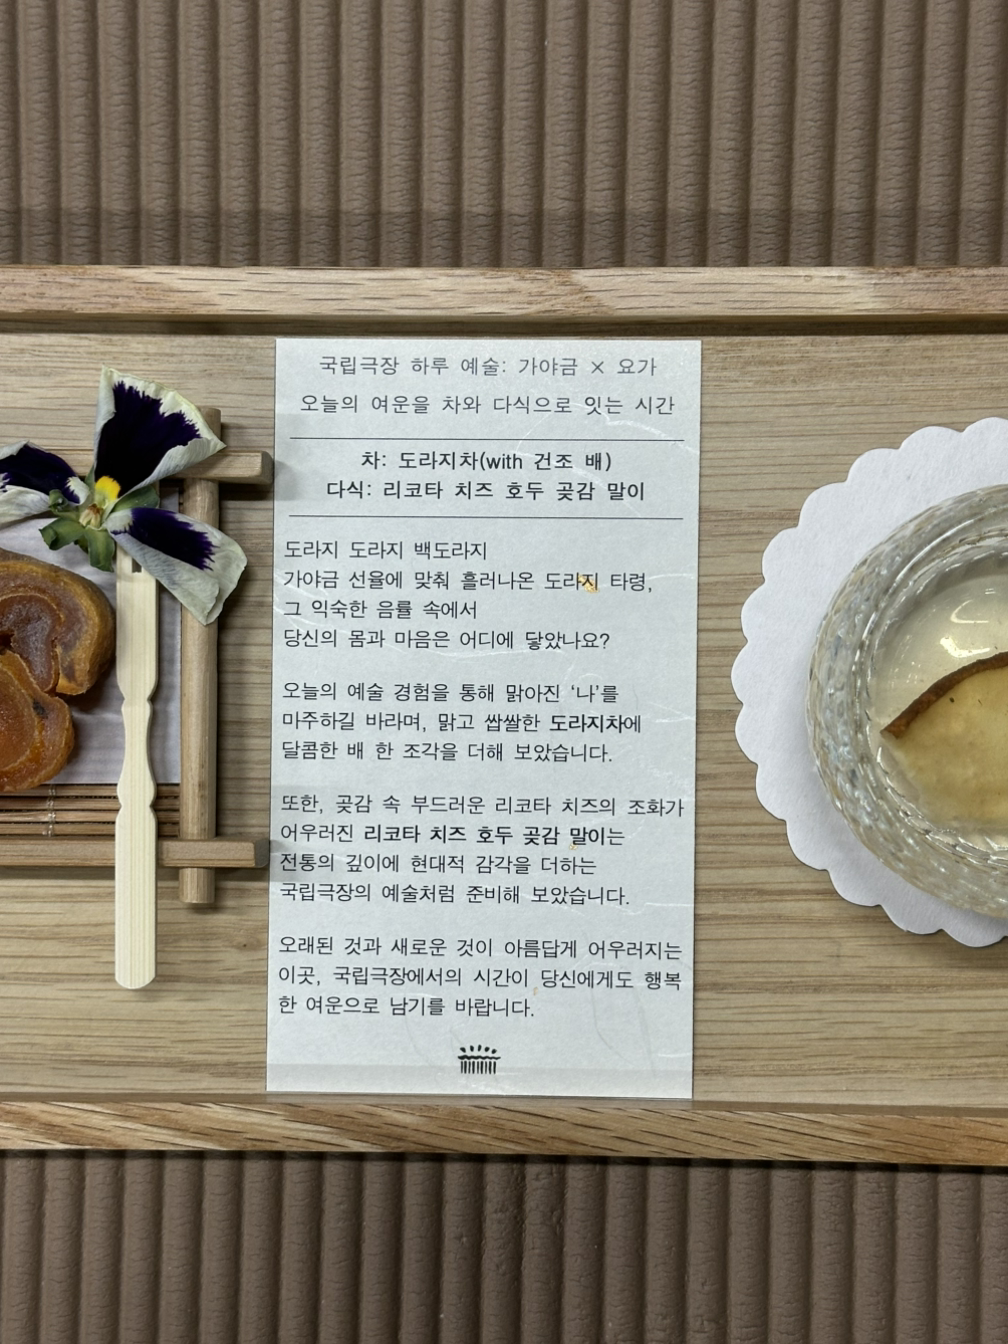 국립극장 하루 예술: 가야금 × 요가
오늘의 여운을 차와 다식으로 잇는 시간
차: 도라지차(with 건조 배)
다식: 리코타 치즈 호두 곶감 말이
도라지 도라지 백도라지
가야금 선율에 맞춰 흘러나온 도라지 타령,
그 익숙한 음률 속에서
당신의 몸과 마음은 어디에 닿았나요?
오늘의 예술 경험을 통해 맑아진 ‘나’를
마주하길 바라며, 맑고 쌉쌀한 도라지차에
달콤한 배 한 조각을 더해 보았습니다.
또한, 곶감 속 부드러운 리코타 치즈의 조화가
어우러진 리코타 치즈 호두 곶감 말이는
전통의 깊이에 현대적 감각을 더하는
국립극장의 예술처럼 준비해 보았습니다.
오래된 것과 새로운 것이 아름답게 어우러지는
이곳, 국립극장에서의 시간이 당신에게도 행복
한 여운으로 남기를 바랍니다.